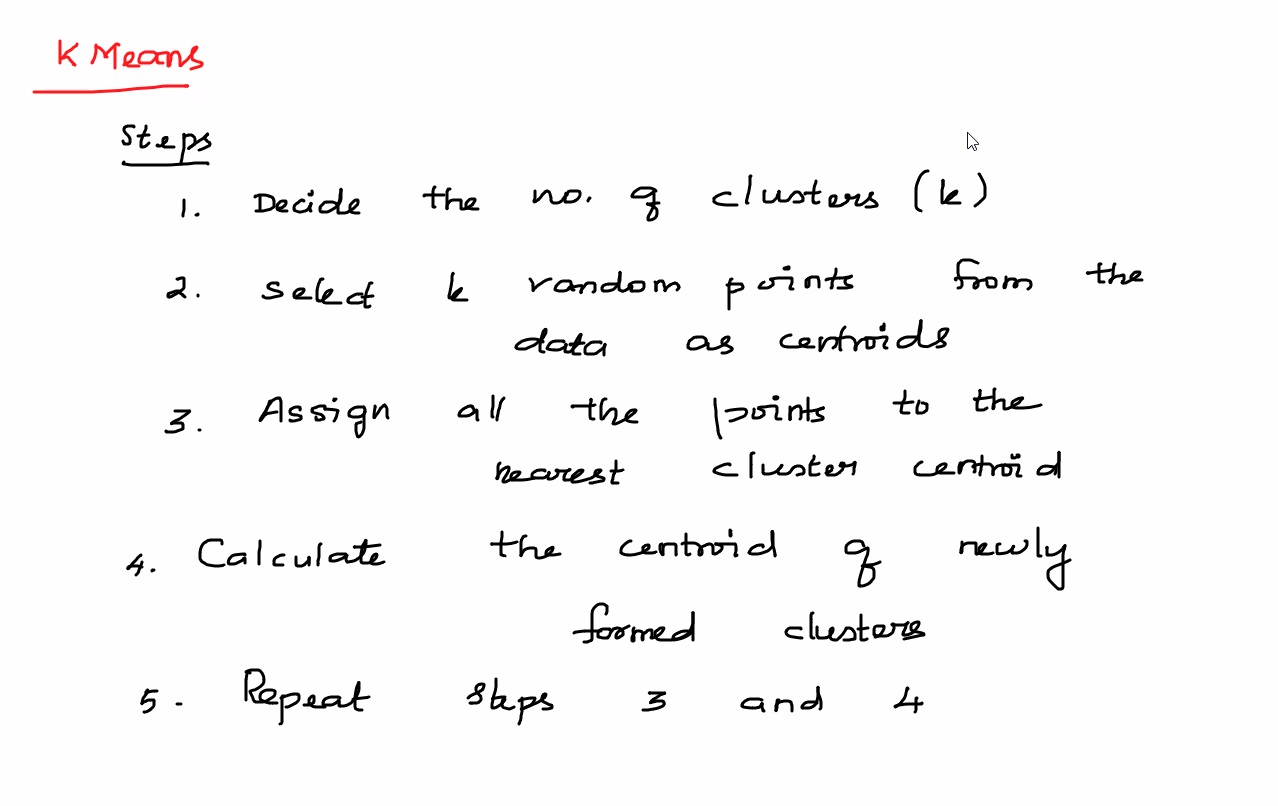 K Means
Steps
1. Decide the no. of clusters (k)
2. select k random points from the
data as centroids
3. Assign all the points to the
nearest cluster centroid
4. Calculate the centroid of newly
formed clusters
5. Repeat steps 3 and 4